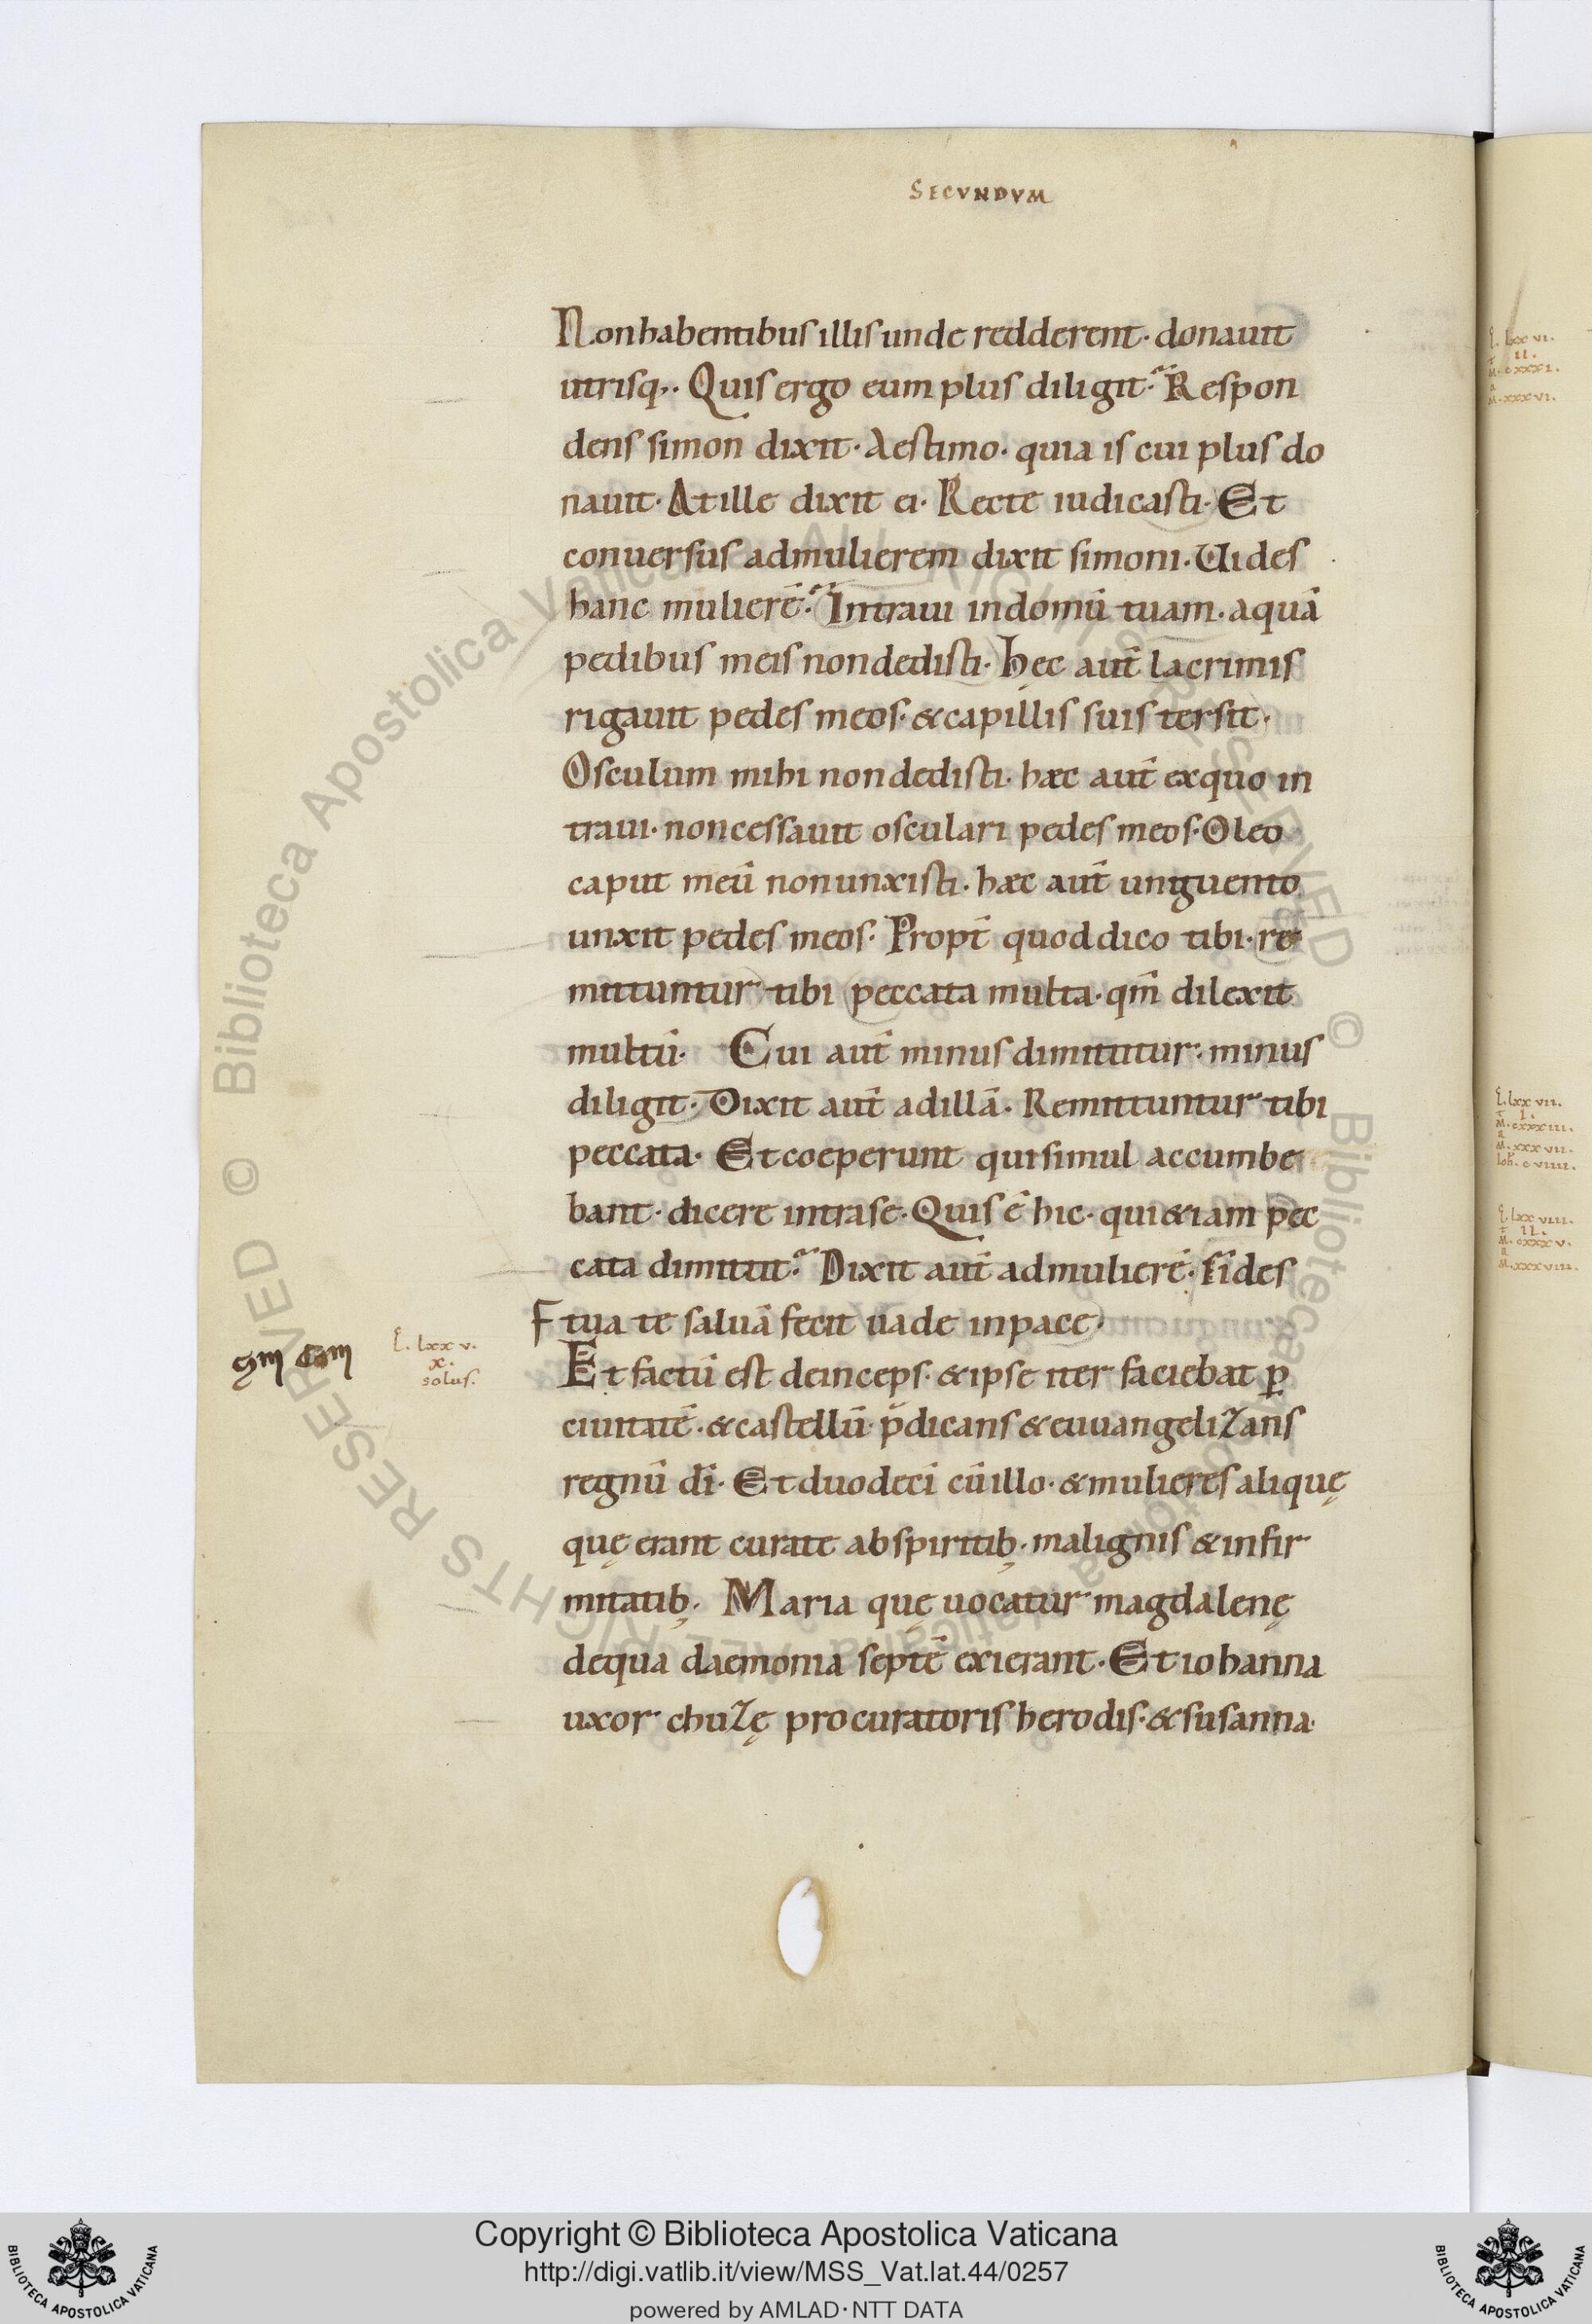 SECVNDVM
Non habentibus illis unde redderent· donauit
utrisq;· Quis ergo eum plus diligit? Respon
dens simon dixit· Aestimo· quia is cui plus do
nauit· At ille dixit ei· Recte iudicasti· Et
conuersus ad mulierem dixit simoni· Uides
hanc mulierē? Intraui in domū tuam· aquā
pedibus meis non dedisti· hęc aut̄ lacrimis
rigauit pedes meos· & capillis suis tersit·
Osculum mihi non dedisti· haec aut̄ ex quo in
traui· non cessauit osculari pedes meos· Oleo
caput meū non unxisti· haec aut̄ unguento
unxit pedes meos· Propt̄ quod dico tibi· re
mittuntur tibi peccata multa· qm̄ dilexit
multū· Cui aut̄ minus dimittitur· minus
diligit· Dixit aut̄ ad illā· Remittuntur tibi
peccata· Et coeperunt qui simul accumbe
bant· dicere intra se· Quis ē hic· qui &iam pec
cata dimittit? Dixit aut̄ ad mulierē· fides
F tua te saluā fecit uade in pace·
L· lxxv·
x·
solus·
Et factū est deinceps· & ipse iter faciebat ꝑ
ciuitatē· & castellū p̄dicans & euuangelizans
regnū dī· Et duodecī cū illo· & mulieres aliquę
quę erant curate ab spiritib;· malignis & infir
mitatib;· Maria quę uocatur magdalenę
de qua daemonia septē exierant· Et iohanna
uxor chuzę procuratoris herodis· & susanna·
L· lxxvi·
II·
M· cxxxi·
M· xxxvi·
L· lxxvii·
I·
M· cxxxiii·
M· xxxvii·
Ioh· cviiii·
L· lxxviii·
II·
M· cxxxv·
M· xxxviii·
© Biblioteca Apostolica Vaticana ALL RIGHTS RESERVED © Biblioteca Apostolica Vaticana ALL RIGHTS RESERVED
Copyright © Biblioteca Apostolica Vaticana
http://digi.vatlib.it/view/MSS_Vat.lat.44/0257
powered by AMLAD·NTT DATA
BIBLIOTECA APOSTOLICA VATICANA
BIBLIOTECA APOSTOLICA VATICANA